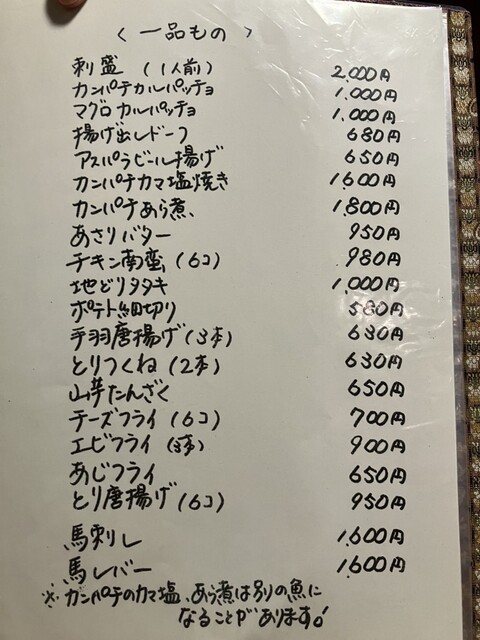 〈 一品もの 〉
刺盛 (1人前) 2,000円
カンパチカルパッチョ 1,000円
マグロカルパッチョ 1,000円
揚げ出しドーフ 680円
アスパラビール揚げ 650円
カンパチカマ塩焼き 1,600円
カンパチあら煮、 1,800円
あさりバター 950円
チキン南蛮 (6コ) 980円
地どりタタキ 1,000円
ポテト細切り 580円
手羽唐揚げ (3本) 630円
とりつくね (2本) 630円
山芋たんざく 650円
チーズフライ (6コ) 700円
エビフライ (3本) 900円
あじフライ 650円
とり唐揚げ (6コ) 950円
馬刺し 1,600円
馬レバー 1,600円
※ カンパチのカマ塩、あら煮は別の魚に
なることがあります!